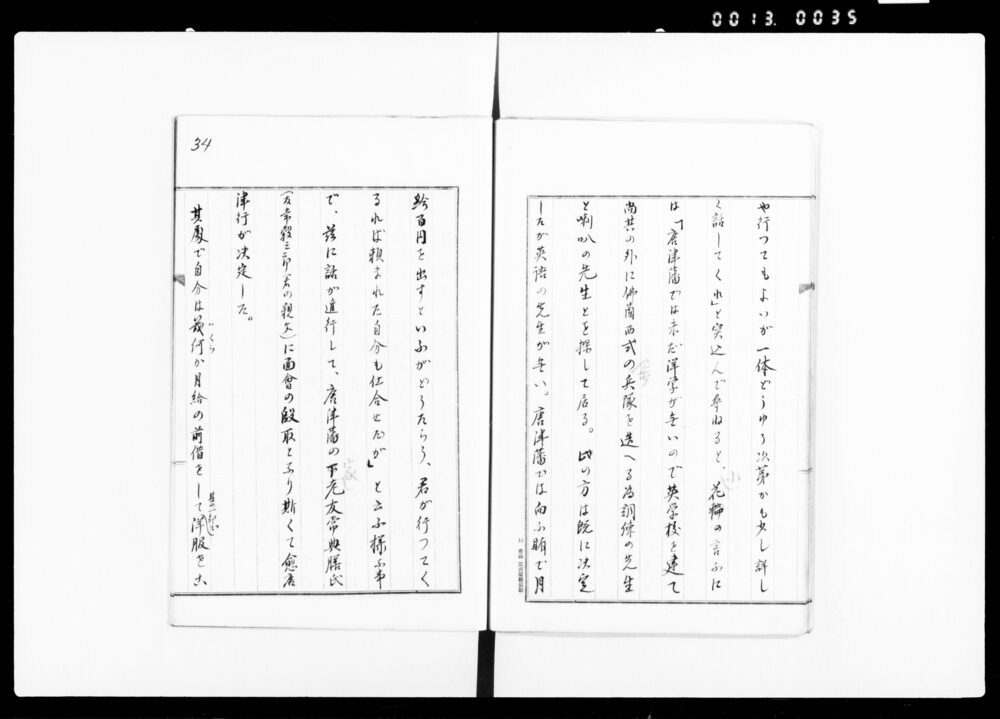 0013.0035
や行つてもよいが一体どうゆう次第かも少し詳し
く話してくれ」と突込んで尋ねると、花輪の言ふに
は「唐津藩では未だ洋学が無いので英学校を建て
尚其の外に佛蘭西式の兵隊を造へる為調練の先生
と喇叭の先生とを探して居る。此の方は既に決定
したが英語の先生が無い。唐津藩では向ふ賄で月
34
給百円を出すといふがどうだらう、君が行つてく
るれば頼まれた自分も仕合せだが」と云ふ様ふ事
で、茲に話が進行して、唐津藩の家老友常典膳氏
(友常穀三郎君の親父)に面會の段取とふり斯くて愈唐
津行が決定した。
其處で自分は幾何か月給の前借をして洋服を